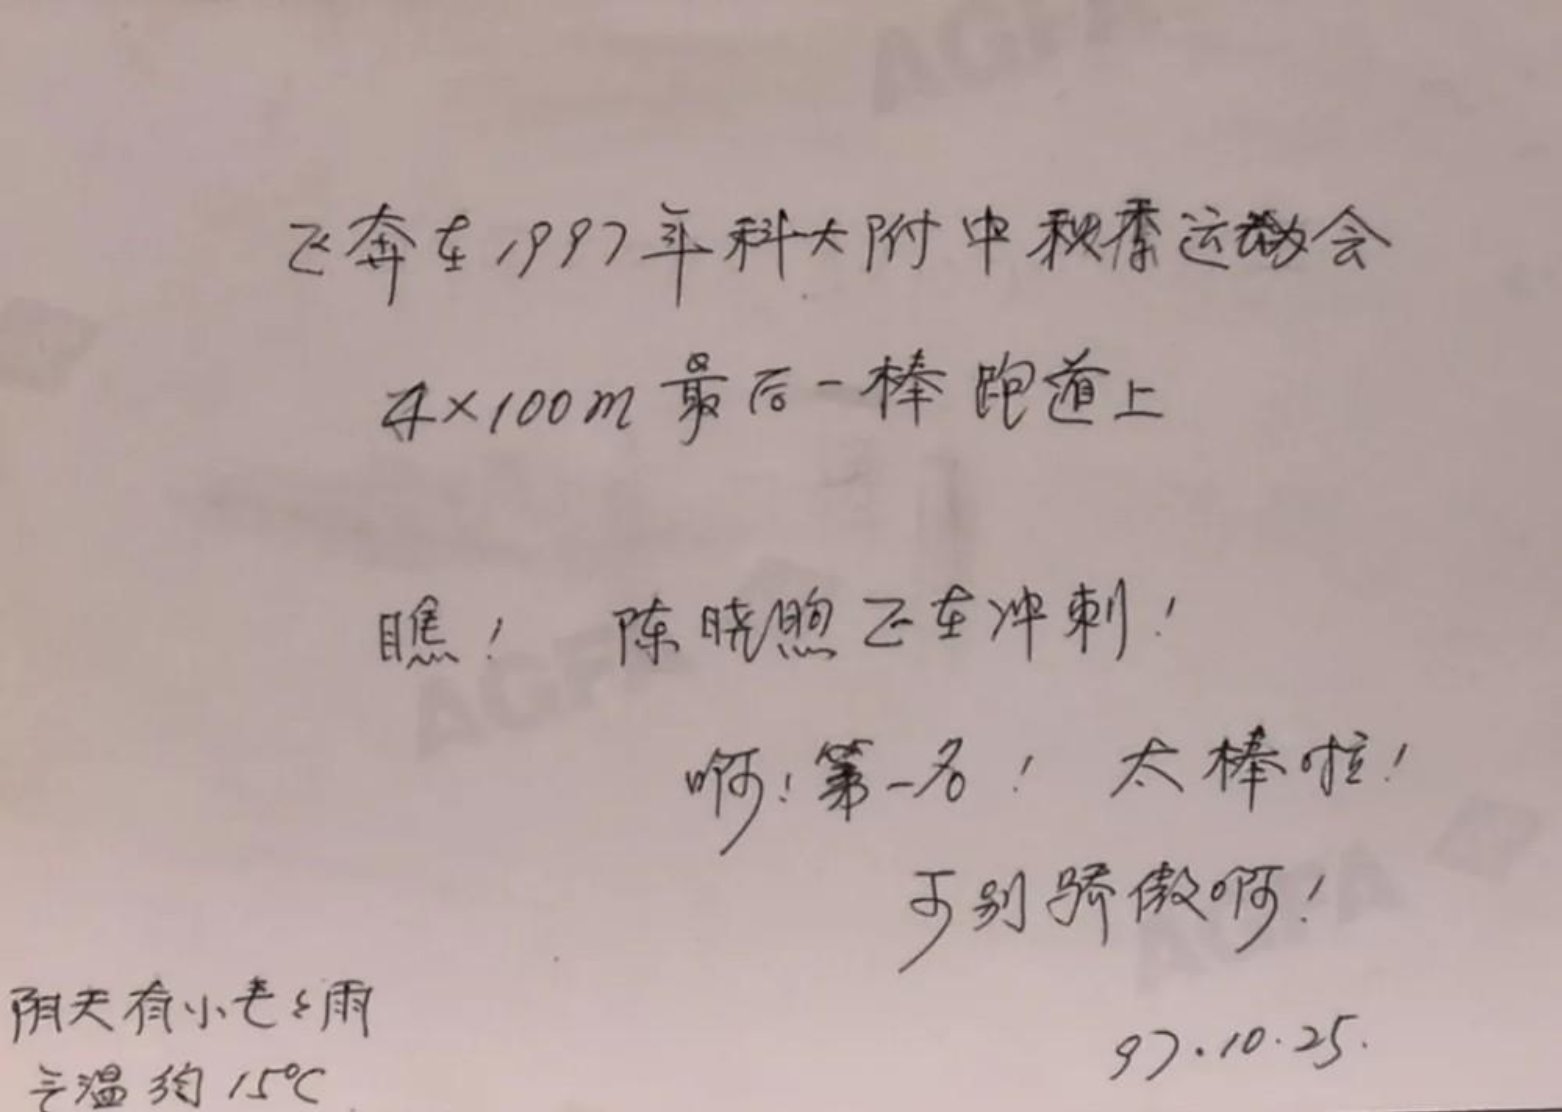 飞奔在1997年科大附中秋季运动会
4×100m最后一棒跑道上
瞧! 陈晓煦正在冲刺!
啊!第一名! 太棒啦!
可别骄傲啊!
阴天有小毛毛雨
气温约15℃
97.10.25.
AGFA
AGFA
AGFA